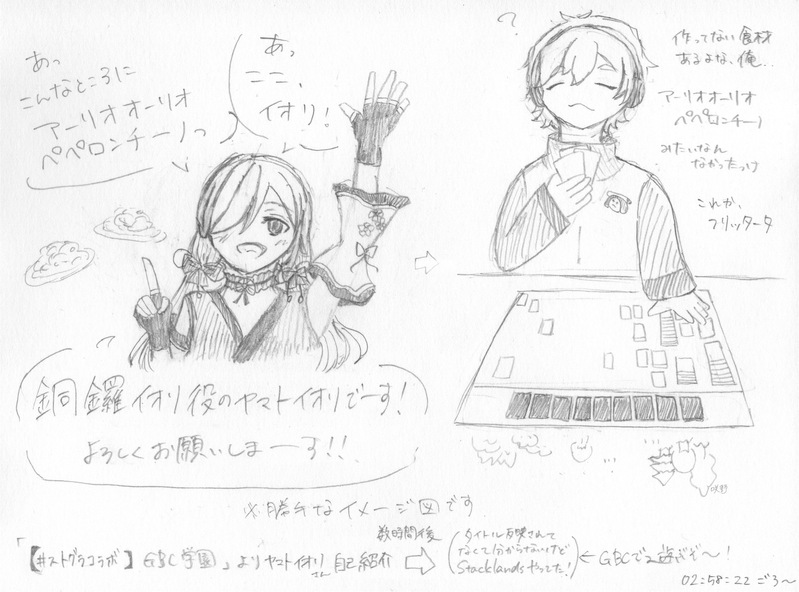 あっ
こんなところに
アーリオオーリオ
ペペロンチーノっ
あっ
ここ、
イオリ!
?
作ってない食材
あるよな、俺..
アーリオオーリオ
ペペロンチーノ
みたいなん
なかったっけ
これか、
フリッタータ
銅鑼イオリ役のヤマトイオリでーす!
よろしくお願いしまーす!!
※勝手なイメージ図です
「【#ストグラコラボ】GBC学園」よりヤマトイオリさん自己紹介
数時間後
(タイトル反映されて
なくて分からないけど
Stacklandsやってた!)
←GBCで遊ぶぞ〜!
02:58:22ごろ〜